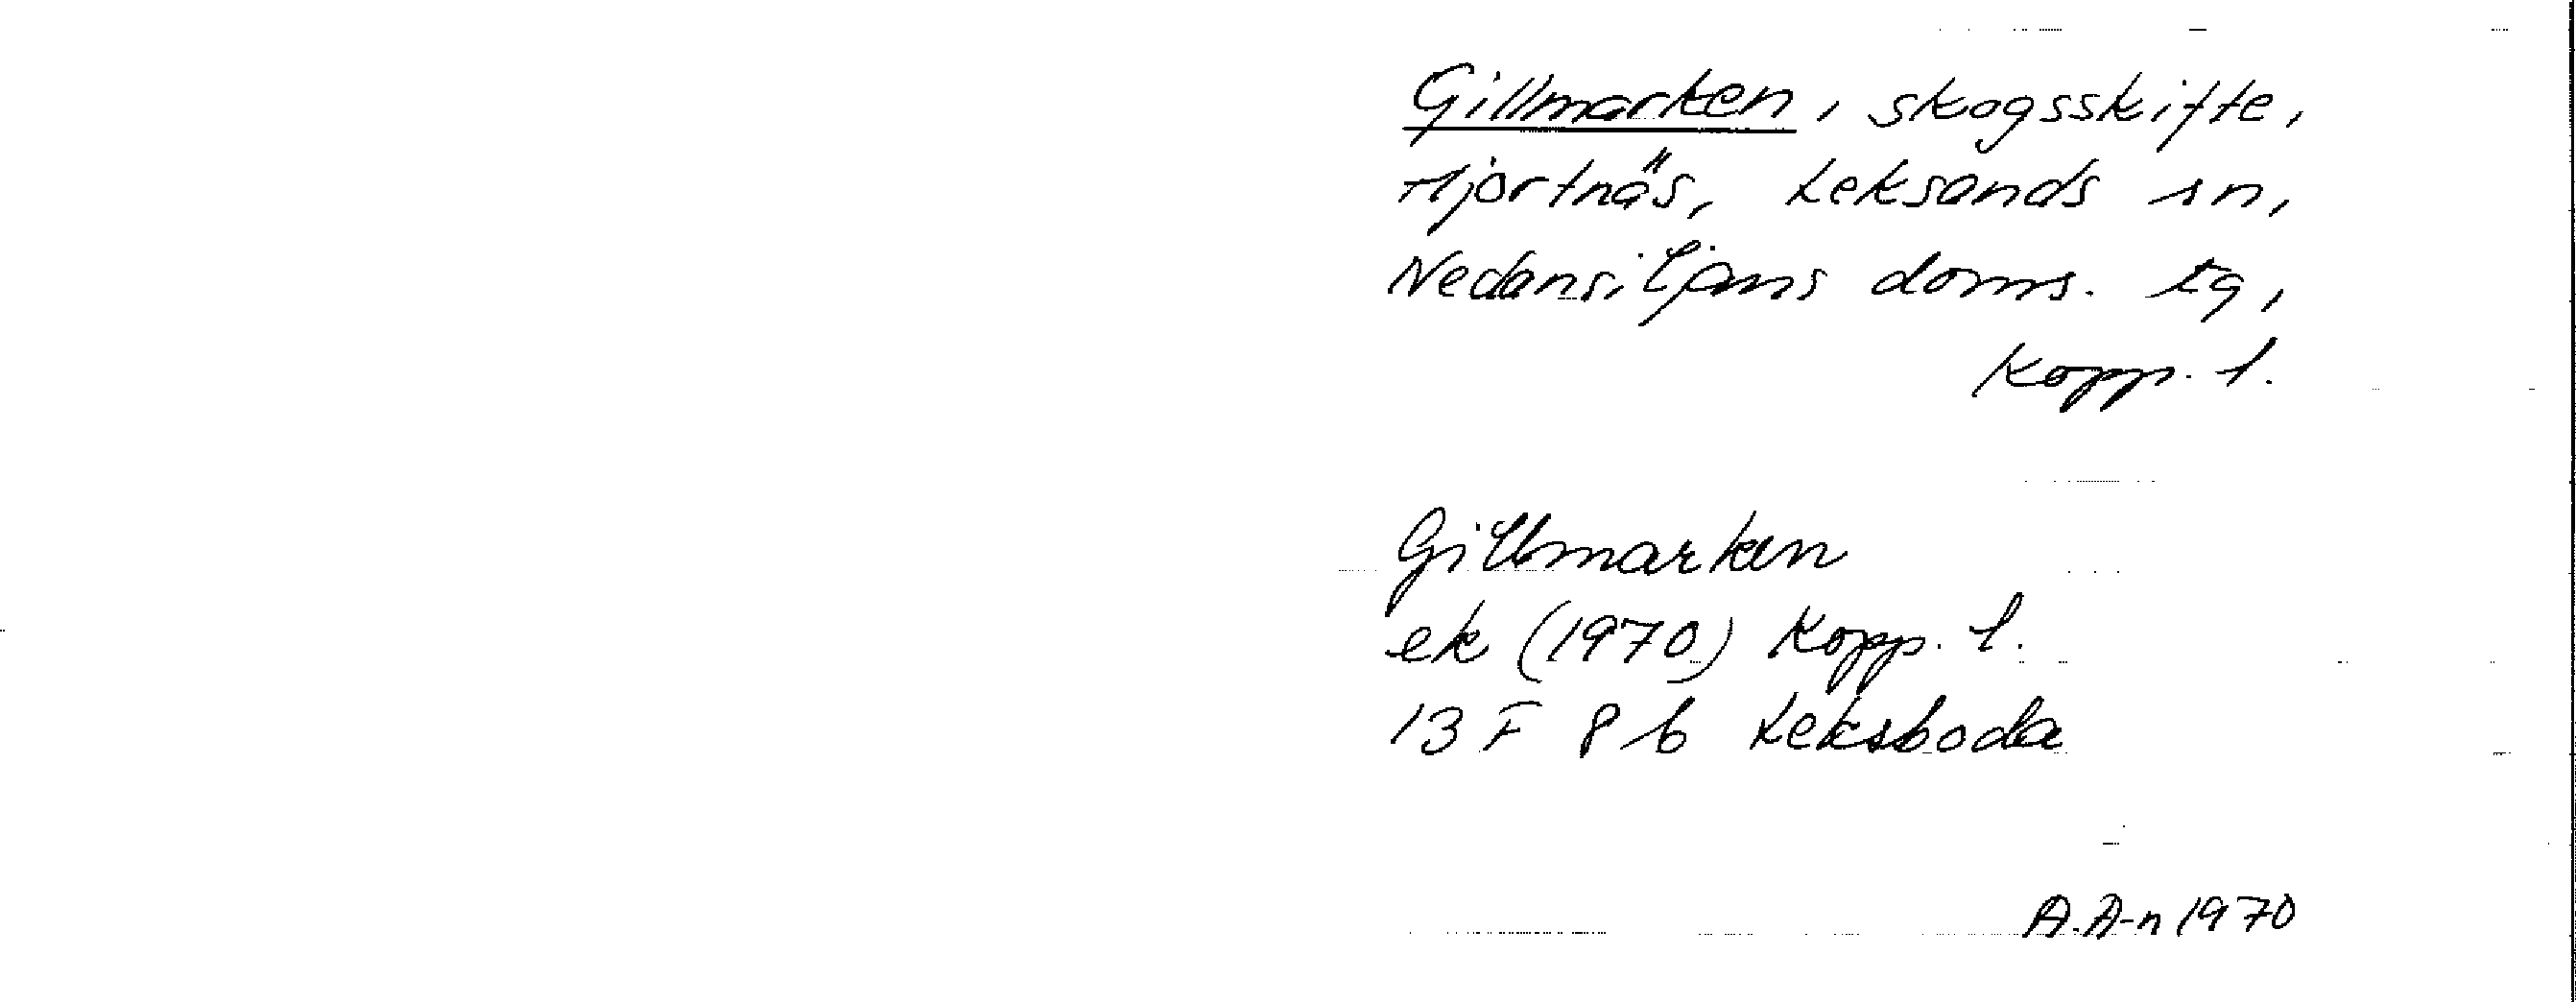 Gillmarken, skogsskifte,
Hjortnäs, Leksands sn,
Nedansiljans doms. tg,
Kopp. l.
Gillmarken
ek (1970) Kopp. l.
13 F 8 b Leksboda
A.A-n 1970